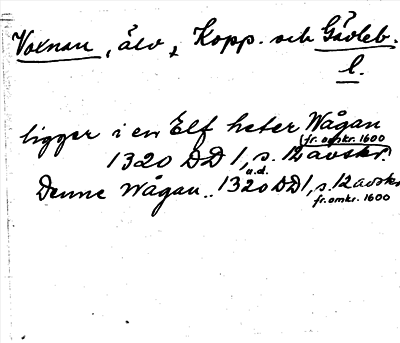 Voxnan, älv, Kopp. och Gävleb.
l.
ligger i en Elf heter Wågan
fr. omkr. 1600
1320 DD 1, s. 12 avskr.
a.d.
Denne Wågan.. 1320 DD 1, s. 12 avskr
fr. omkr. 1600